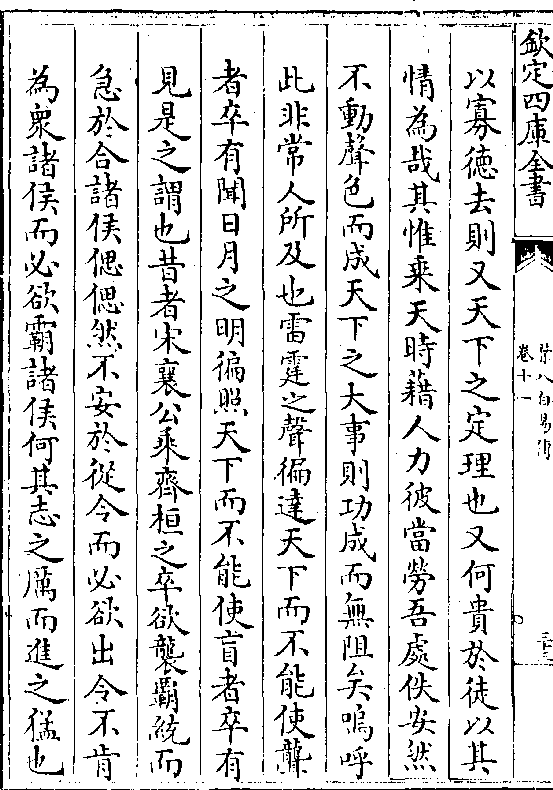 欽定四庫全書
卷十一
以寡徳去則又天下之定理也又何貴於徒以其
情為哉其惟乗天時藉人力彼當勞吾處佚安然
不動聲色而成天下之大事則功成而無阻矣嗚呼
此非常人所及也雷霆之聲徧達天下而不能使聾
者卒有聞日月之明徧照天下而不能使盲者卒有
見是之謂也昔者宋襄公乘齊桓之卒欲襲霸統而
急於合諸侯偲偲然不安於從令而必欲出令不肯
為衆諸侯而必欲霸諸侯何其志之厲而進之猛也